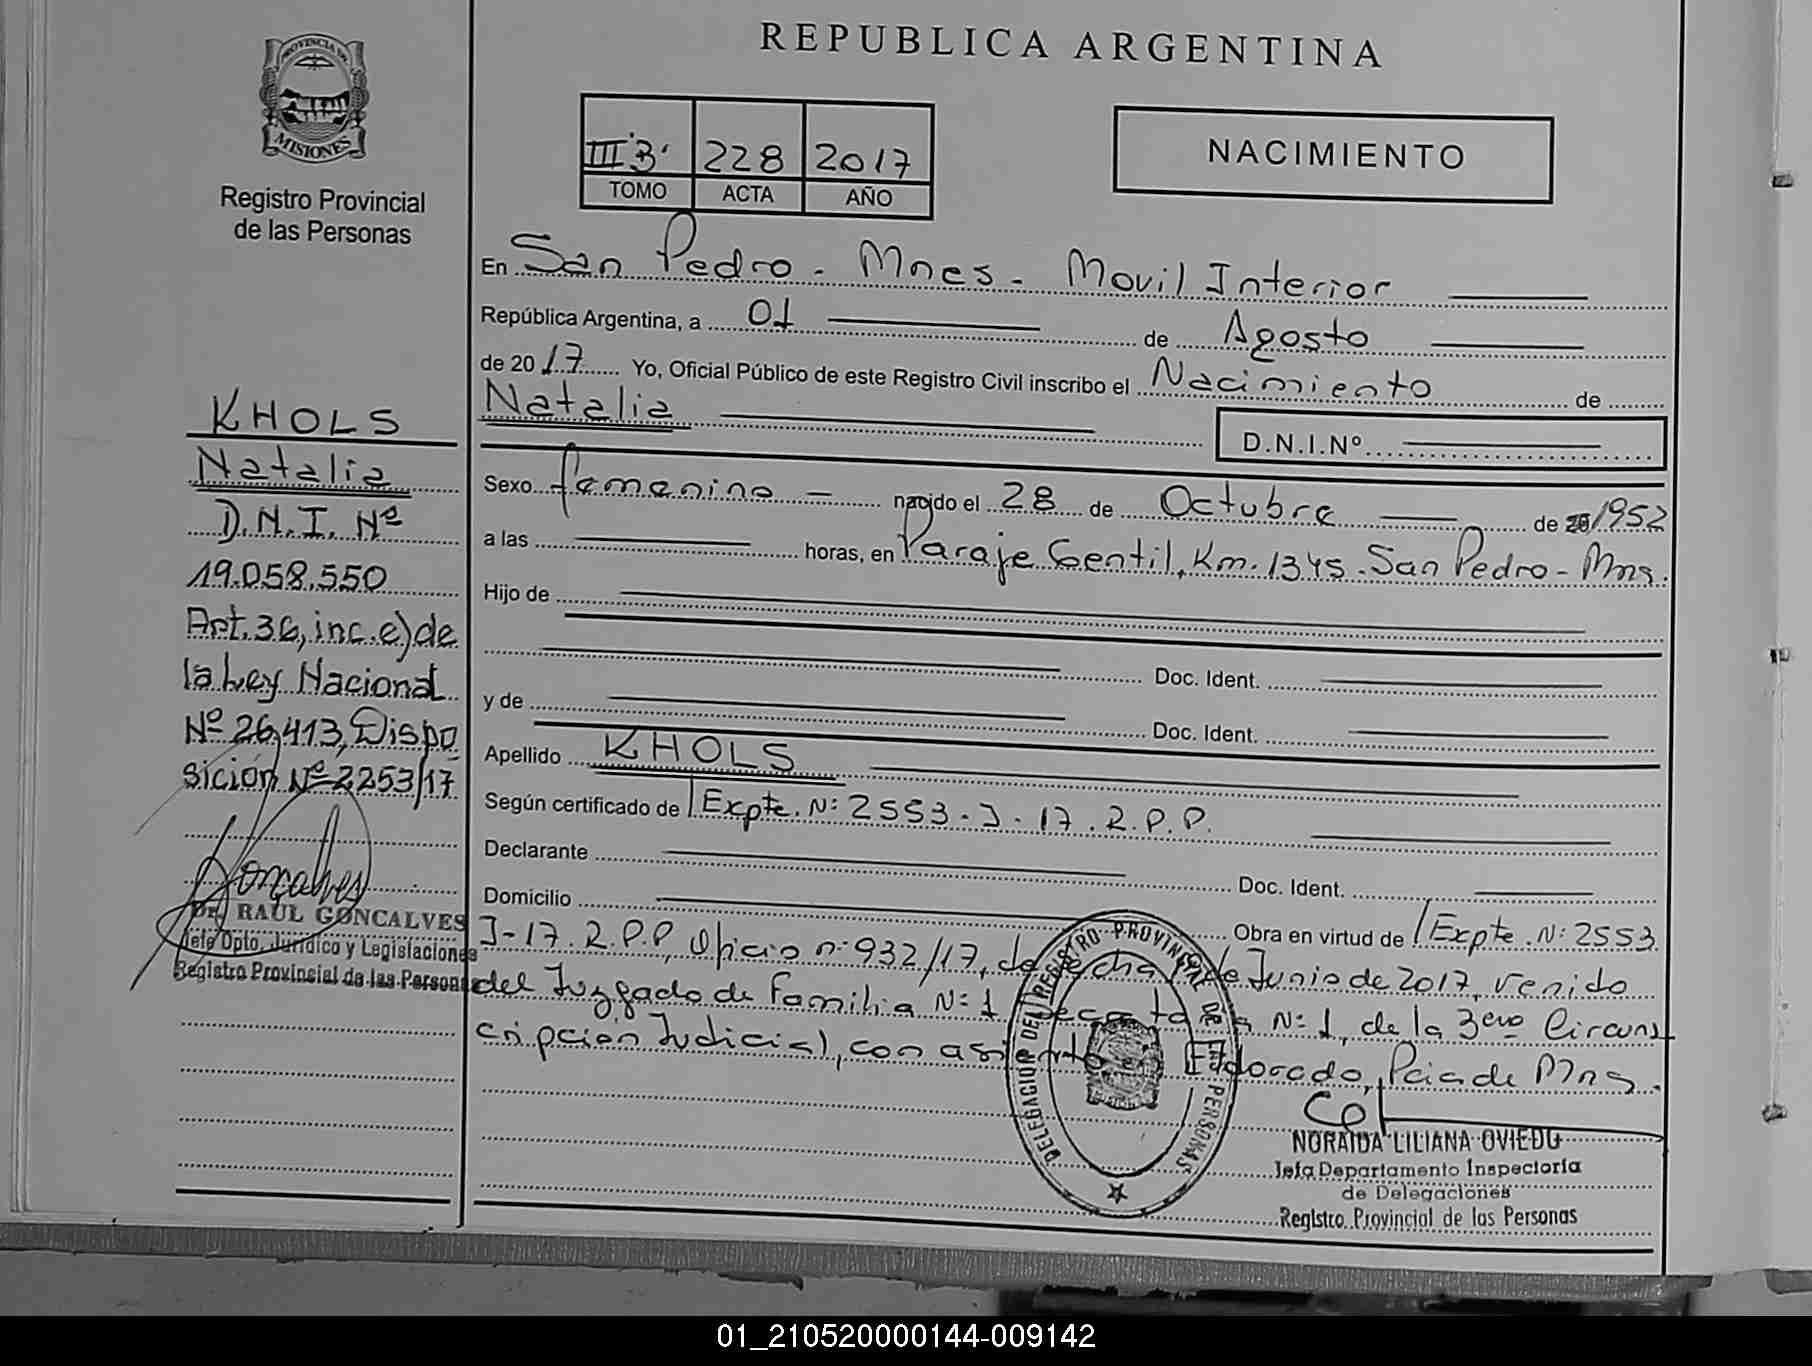 REPUBLICA ARGENTINA
PROVINCIA DE
MISIONES
Registro Provincial
de las Personas
III "B" 228 2017
TOMO ACTA AÑO
NACIMIENTO
En San Pedro - Mnes - Movil Interior
República Argentina, a 01 de Agosto
de 2017 Yo, Oficial Público de este Registro Civil inscribo el Nacimiento de
Natalia D.N.I.Nº
Sexo femenino - nacido el 28 de Octubre de 1952
a las horas, en Paraje Gentil, Km. 1345. San Pedro - Mns.
Hijo de
Doc. Ident.
y de
Doc. Ident.
Apellido KHOLS
Según certificado de Expte. Nº: 2553-J-17.R.P.P.
Declarante
Doc. Ident.
Domicilio
Obra en virtud de Expte. Nº: 2553
J-17.R.P.P, Oficio nº 932/17, de fecha de Junio de 2017, venido
del Juzgado de Familia Nº: 1 Nº: 1, de la 3era Circuns
cripción Judicial, con asiento Eldorado, Pcia de Mns.
KHOLS
Natalia
D.N.I. Nº
19.058.550
Art. 36, inc. e) de
la Ley Nacional
Nº 26,413, Dispo
sición Nº 2253/17
Goncalves
Dr. RAUL GONCALVES
Jefe Dpto. Jurídico y Legislaciones
Registro Provincial de las Personas
DELEGACION DEL REGISTRO PROVINCIAL DE PERSONAS
NORAIDA LILIANA OVIEDO
Jefa Departamento Inspectoría
de Delegaciones
Registro Provincial de las Personas
01_210520000144-009142